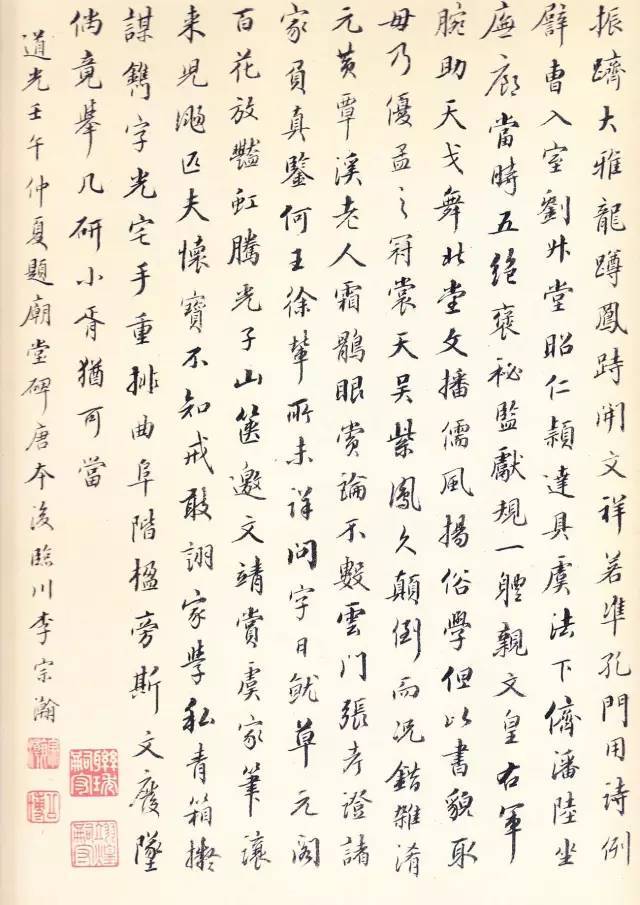 振躋大雅龍蹲鳳跱開文祥若準孔門用詩例
譬曹入室劉升堂昭仁穎達具虞法下儕潘陸坐
廡廊當時五絕褒祕監獻規一體親文皇右軍
腕助天戈舞北堂文播儒風揚俗學但以書貌取
毋乃優孟之冠裳天吳紫鳳久顛倒而况錯雜淆
元黃覃溪老人霜鶻眼賞論不數雲門張考證諸
家負真鑒何王徐輩所未詳問字日鱿草元閣
百花放豔虹騰光子山篋邀文靖賞虞家筆瀼
来児颺匹夫懷寶不知戒敢詡家學私青箱擬
謀鐫字光宅手重排曲阜階楹旁斯文廢墜
倘竟舉几研小胥猶可當
道光壬午仲夏題廟堂碑唐本後臨川李宗瀚